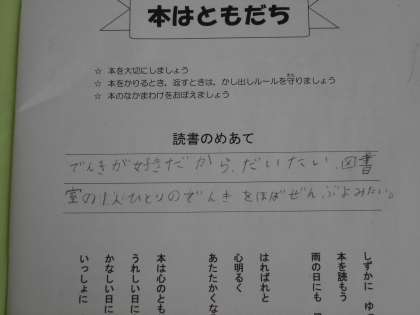 本はともだち
☆ 本を大切にしましょう
☆ 本をかりるとき、返すときは、かし出しルールを守りましょう
☆ 本のなかまわけをおぼえましょう
読書のめあて
でんきが好きだから、だいたい、図書
室の1人ひとりのでんきをほぼぜんぶよみたい。
しずかに ゆ
本を読もう
雨の日にも
はればれと
心明るく
あたたかくな
本は心のとも
うれしい日に
かなしい日に
いっしょに